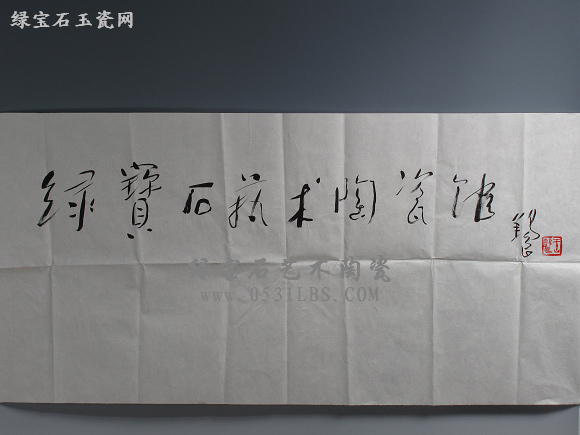 绿宝石玉瓷网
绿寶石藝术陶瓷馆
绿宝石艺术陶瓷
www.0531LBS.COM